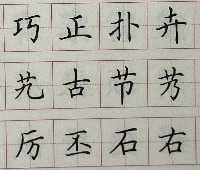 巧正扑卉
艽古节艿
厉丕石右